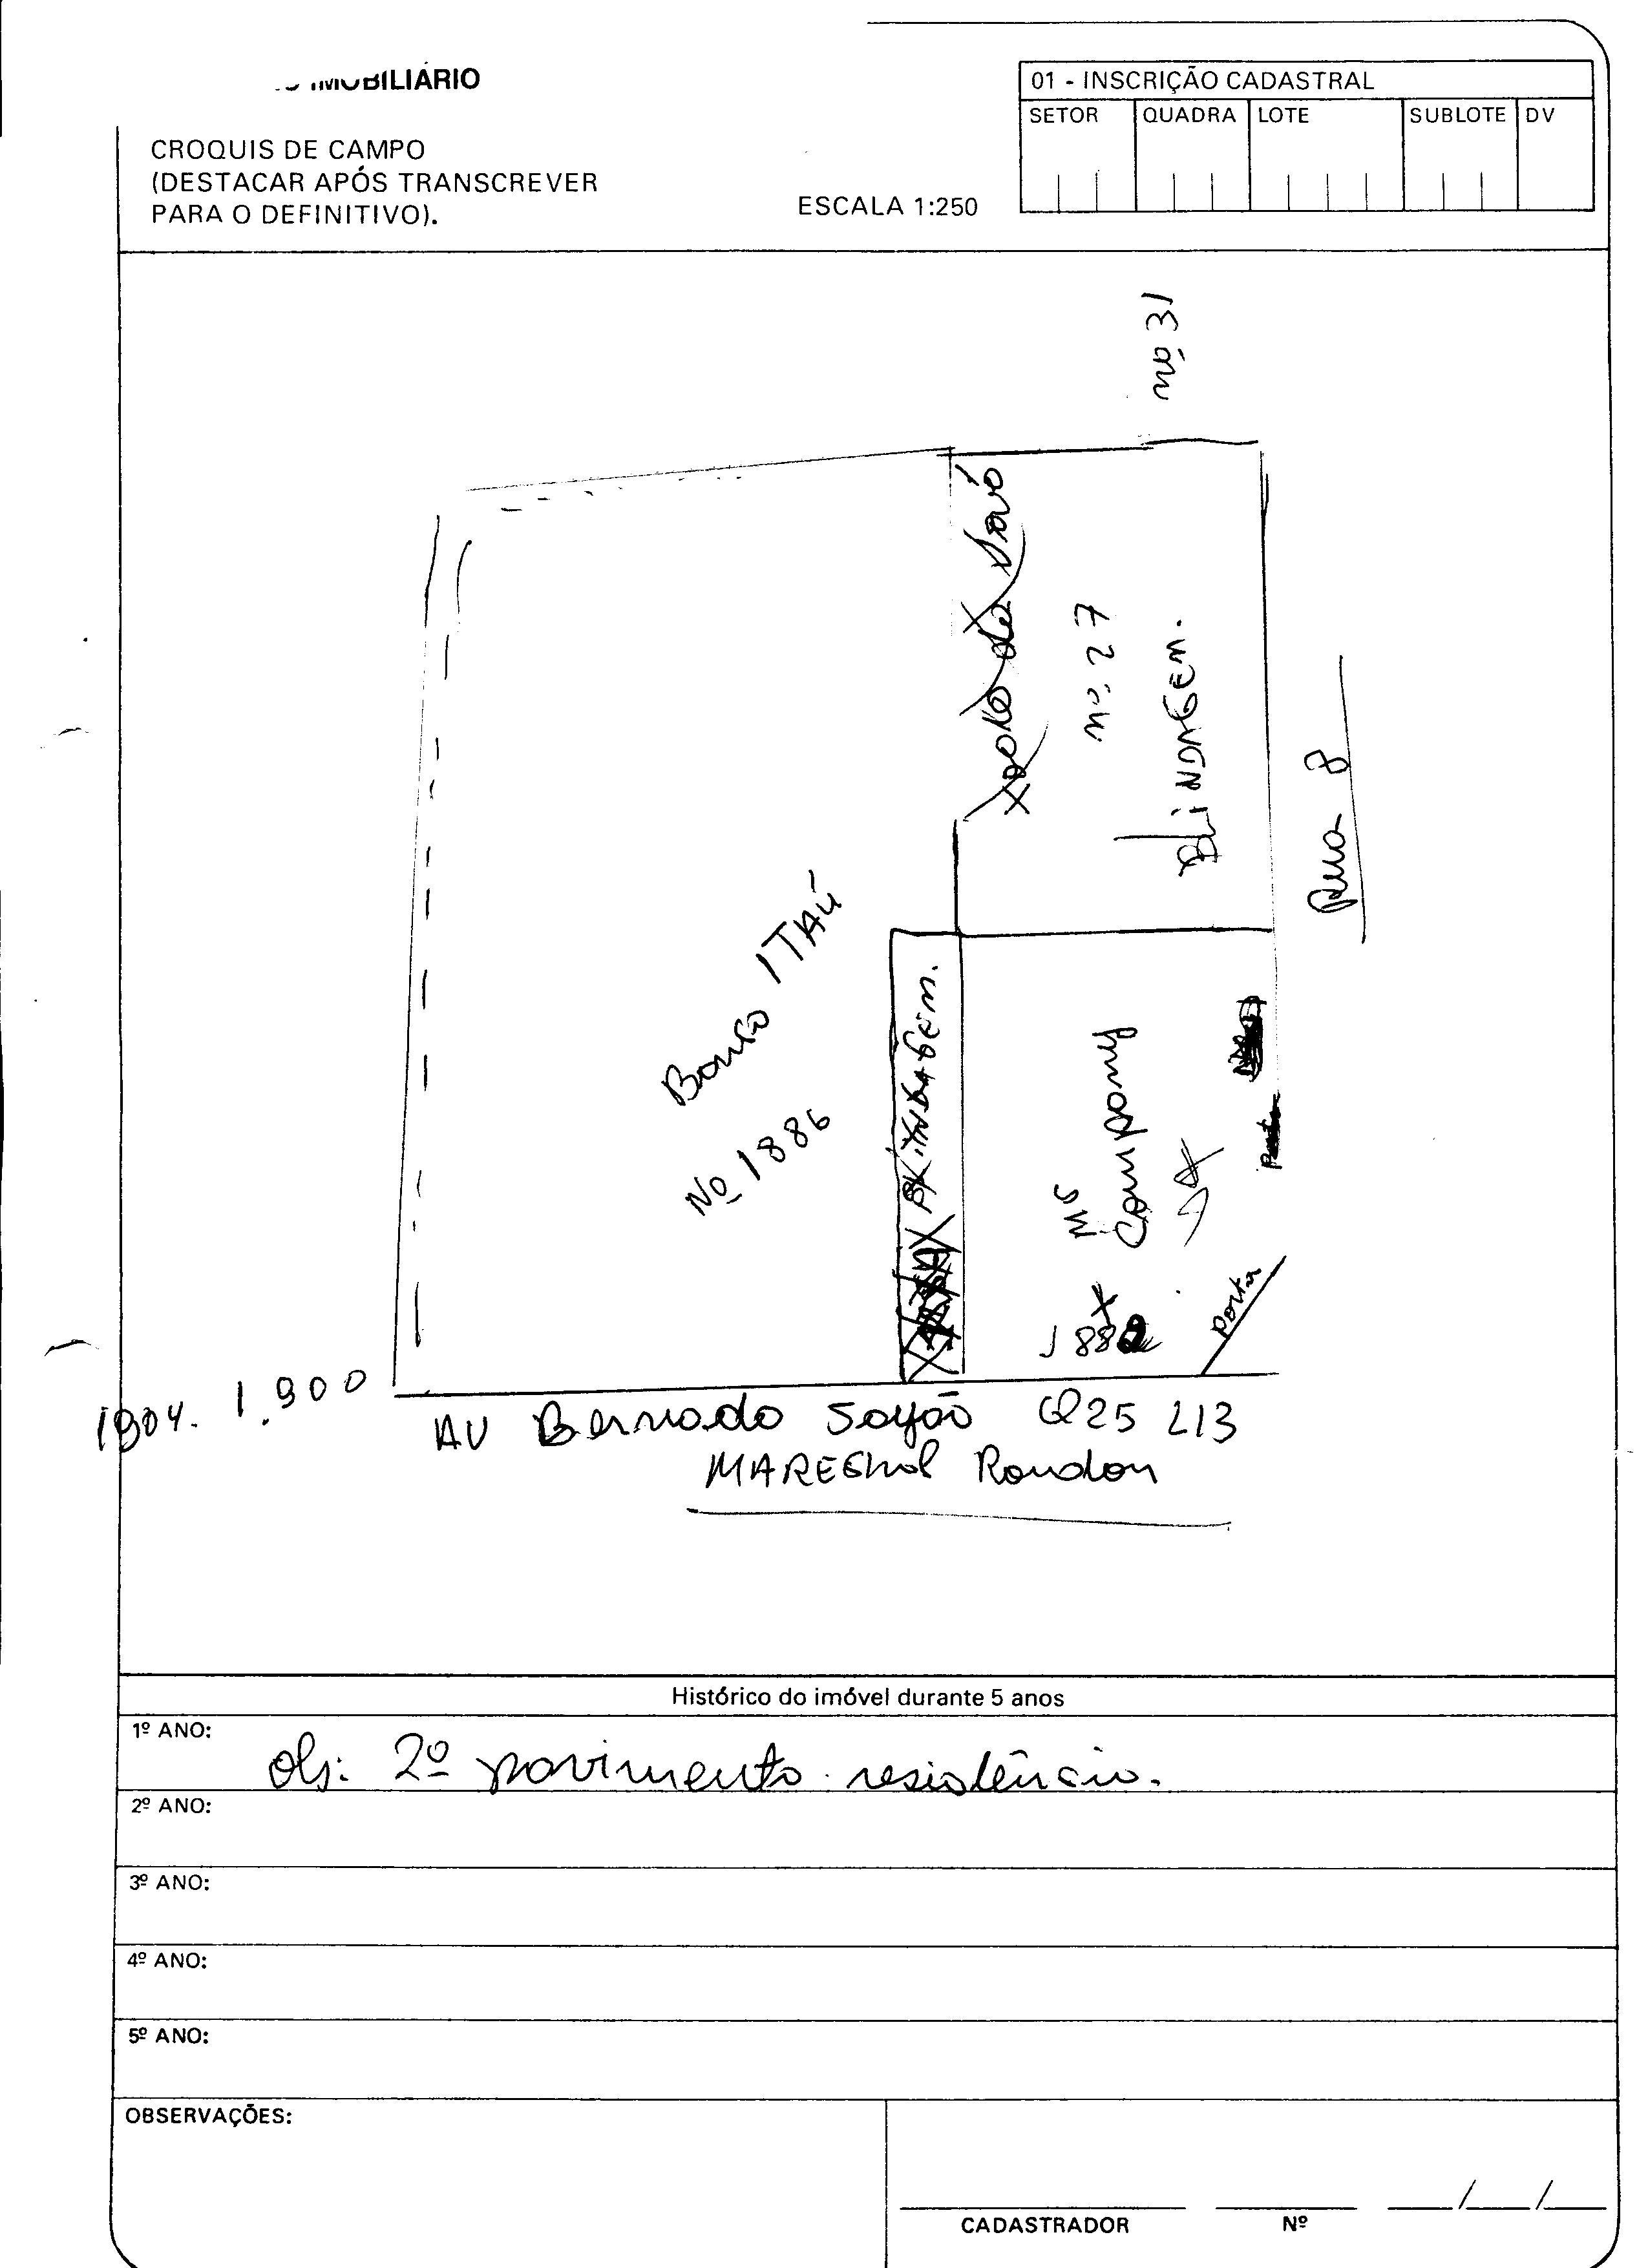 IMOBILIÁRIO
01 - INSCRIÇÃO CADASTRAL
SETOR QUADRA LOTE SUBLOTE DV
CROQUIS DE CAMPO
(DESTACAR APÓS TRANSCREVER
PARA O DEFINITIVO).
ESCALA 1:250
nº 31
nº 27
BLINDAGEM.
Rua 8
Banco ITAÚ
Nº 1886
BLINDAGEM.
MS
Company
Porta
1904. 1.900
AV Bernado Sayão Q25 L13
MARECHAL Rondon
Histórico do imóvel durante 5 anos
1º ANO:
obs: 2º pavimento residência.
2º ANO:
3º ANO:
4º ANO:
5º ANO:
OBSERVAÇÕES:
CADASTRADOR Nº